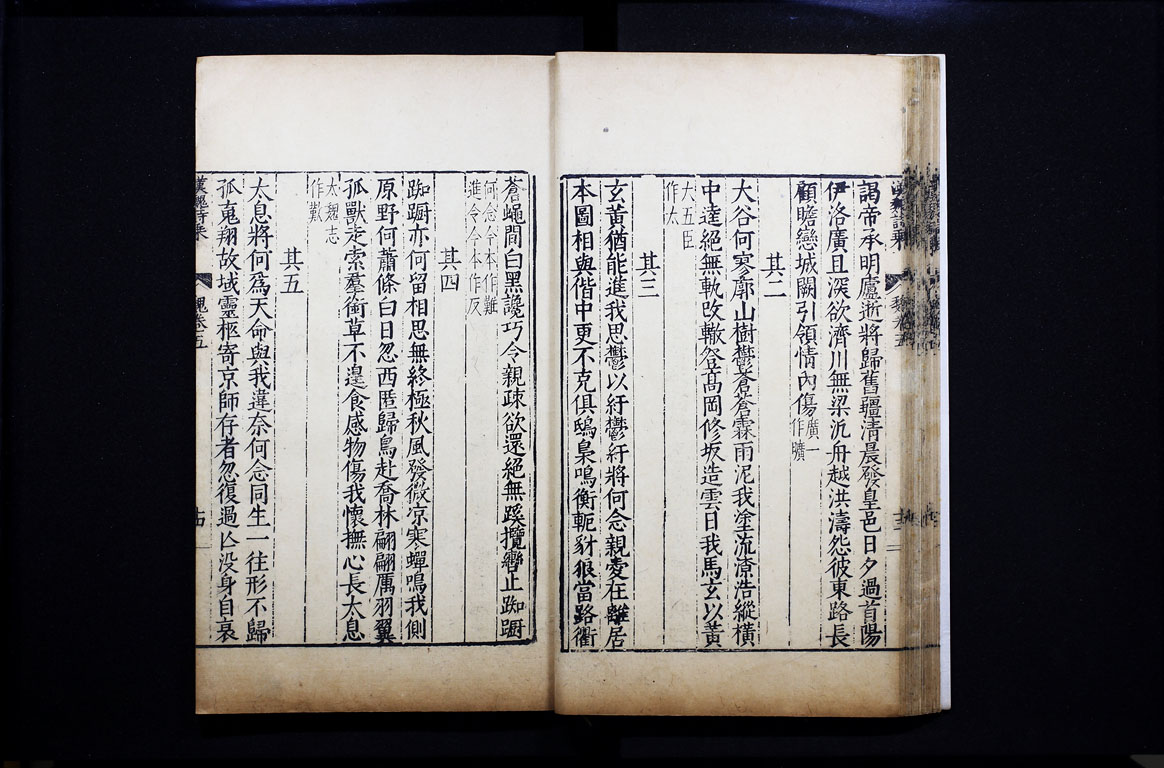 謁帝承明廬逝將歸舊疆清晨發皇邑日夕過首陽
伊洛廣且深欲濟川無梁汎舟越洪濤怨彼東路長
顧瞻戀城闕引領情內傷廣一
作曠
其二
大谷何寥廓山樹鬱蒼蒼霖雨泥我塗流潦浩縱橫
中逵絕無軌改轍登髙岡修坂造雲日我馬玄以黃
大五臣
作太
其三
玄黃猶能進我思鬱以紆鬱紆將何念親愛在離居
本圖相與偕中更不克俱鴟梟鳴衡軛豺狼當路衢
蒼蠅間白黑讒巧令親疎欲還絕無蹊攬轡止踟蹰
何念今本作難
進令今本作反
其四
踟蹰亦何留相思無終極秋風發微凉寒蟬鳴我側
原野何蕭條白日忽西匿歸鳥赴喬林翩翩厲羽翼
孤獸走索羣銜草不遑食感物傷我懷撫心長太息
太魏志
作歎
其五
太息將何爲天命與我違奈何念同生一往形不歸
孤䰟翔故域靈柩寄京師存者忽復過亾没身自衰
漢魏詩乘
魏卷五
十四